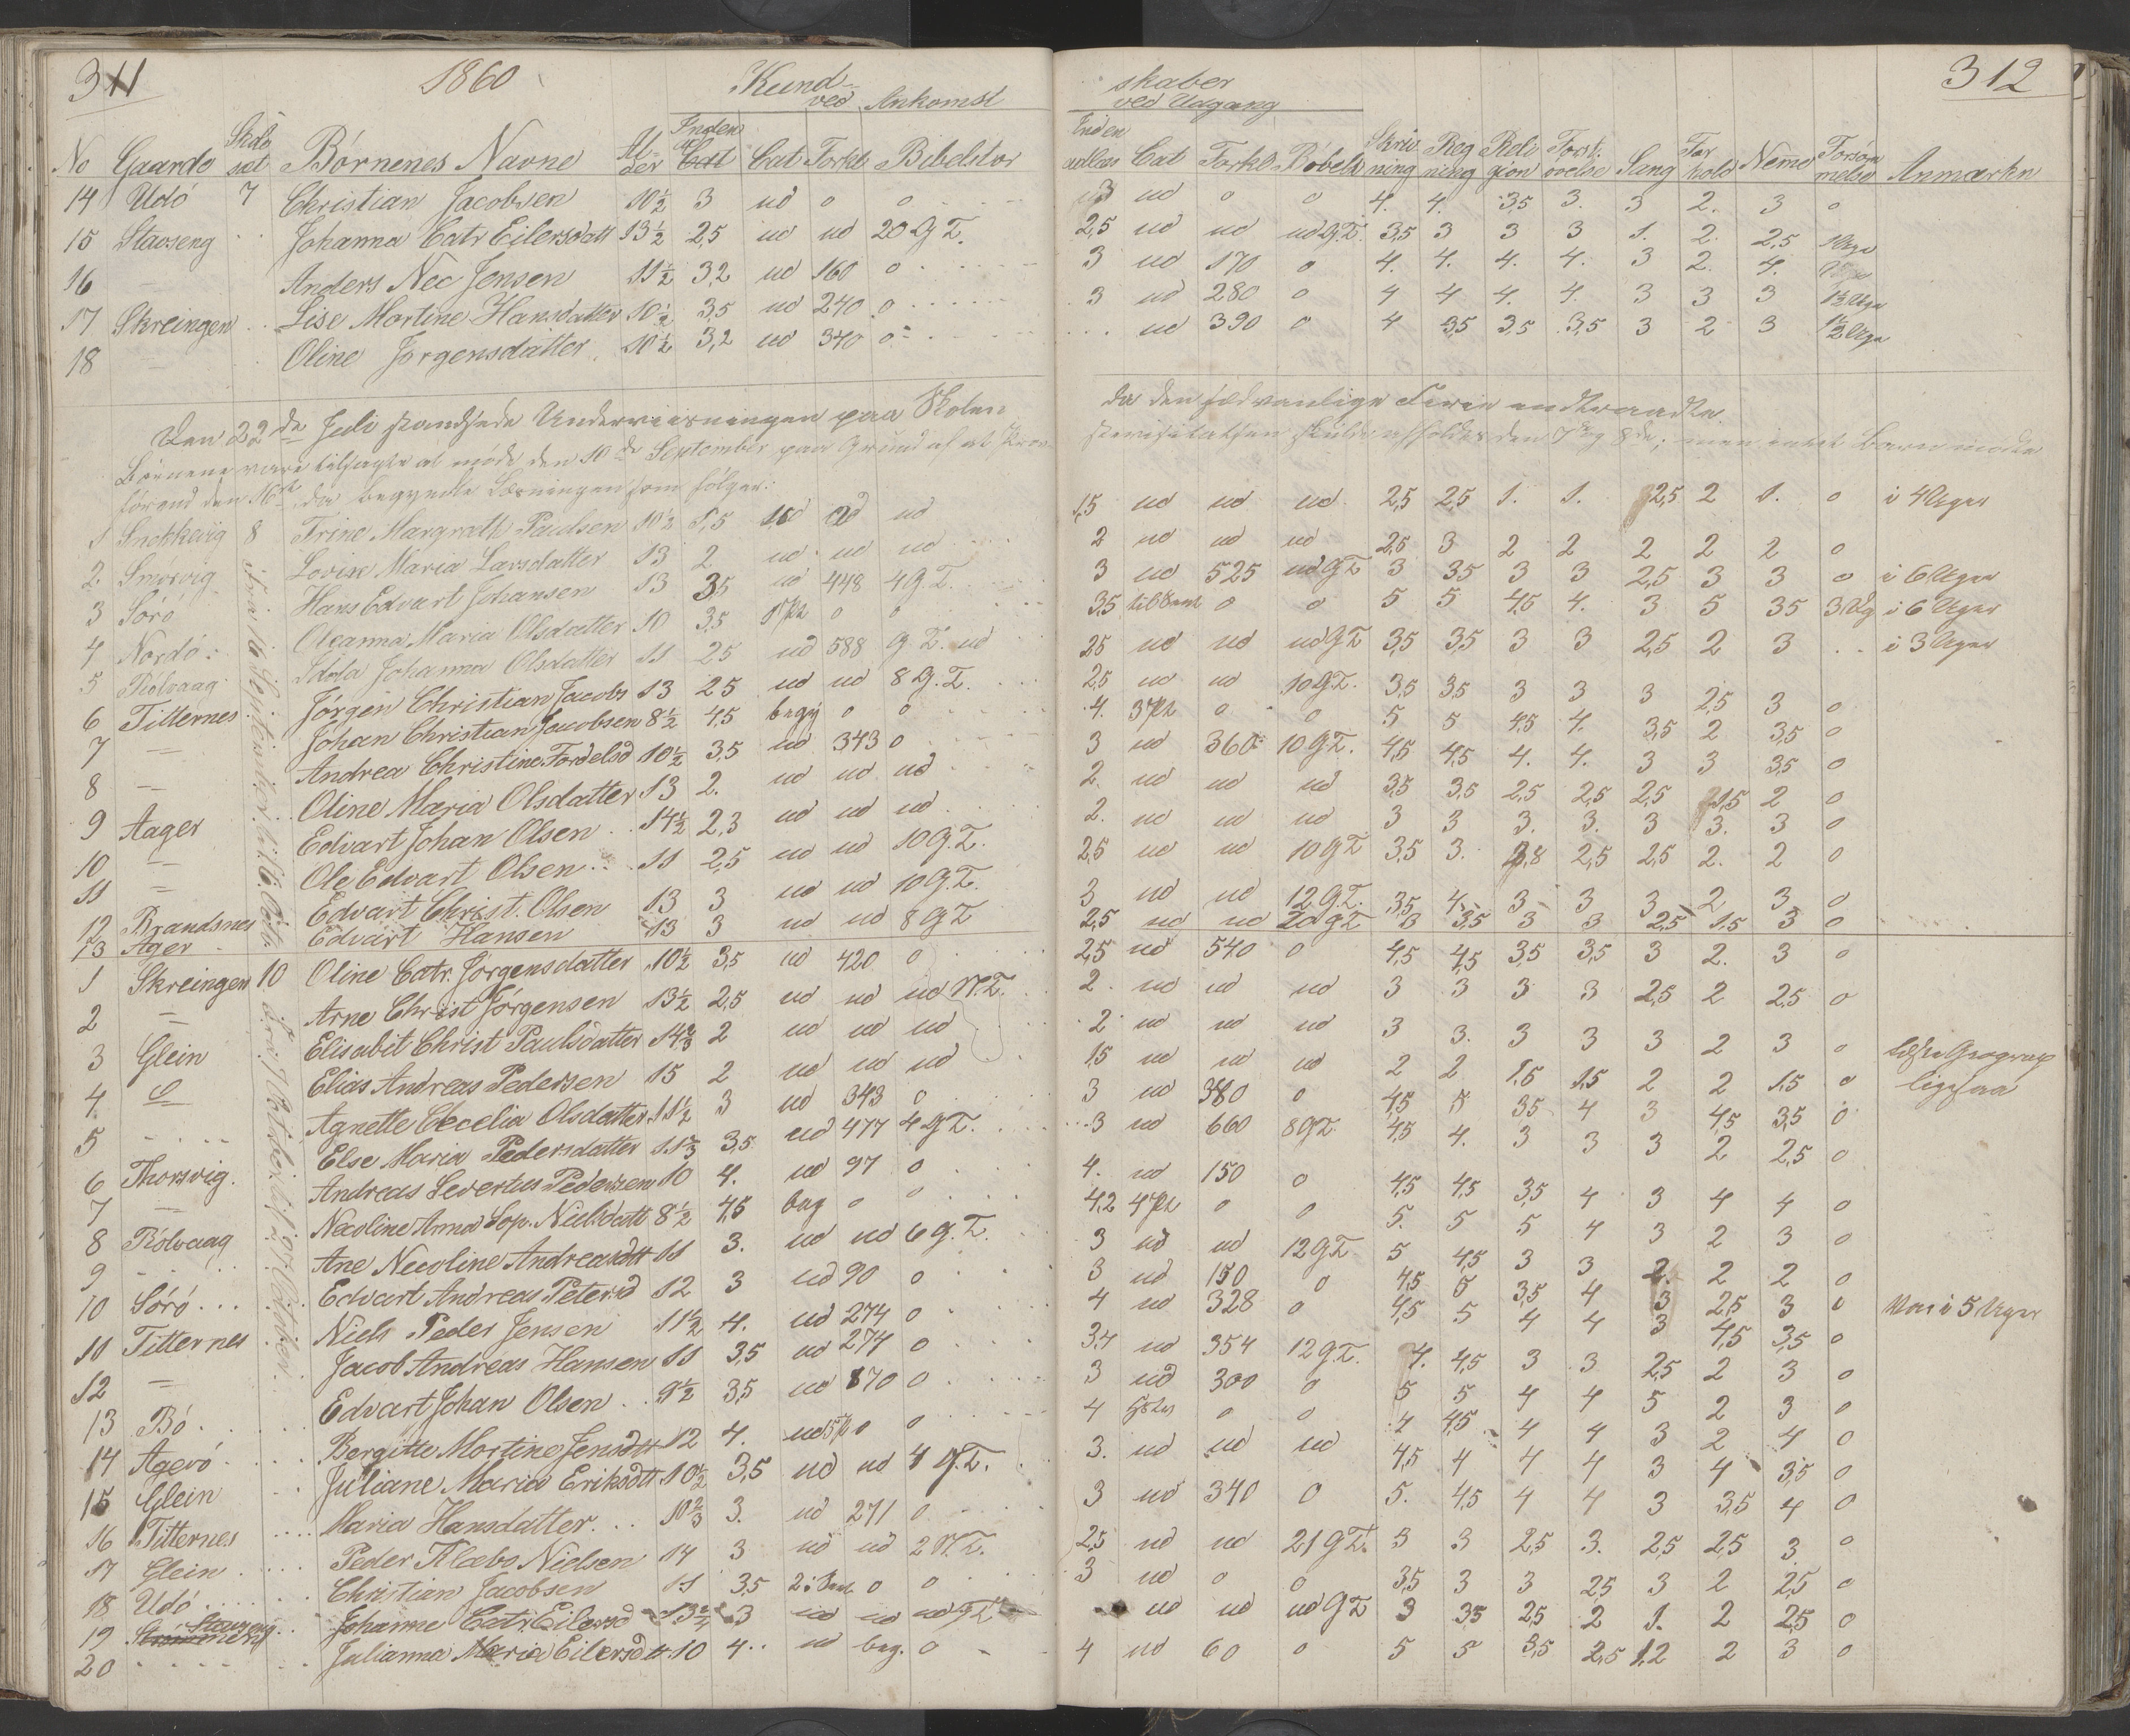 311 1860 Kund- skaber 312
ved Ankomst ved Udgang
No Gaarde Skole sæt Børnenes Navne Al der Inden Cat Forkl Bibelhtor Inden adlæs Cat Forkl Bøbelh Skriv ning Reg ning Reli gion Forst. Sang For hold Neme Forsøm melse Anmærkn
14 Udö 7 Christian Jacobsen 10½ 3 ud 0 0 3 ud 0 0 4. 4. 3,5 3. 3 2. 3 0
15 Stavseng Johanna Catr Eilersdatt 13½ 2,5 ud ud 20 G T. 2,5 ud ud ud G.T. 3,5 3 3 3 1. 2. 2,5 1 Uge
16 Anders Nec Jensen 11½ 3,2 ud 160 0 3 ud 170 0 4. 4. 4. 4. 3 2. 4.
17 Skreingen Lise Martine Hansdatter 10½ 3,5 ud 240 0 3 ud 280 0 4 4 4. 4. 3 3 3 1½ Uge
18 — Oline Jørgensdatter 10½ 3,2 ud 340 0 ud 390 0 4 3,5 3,5 3,5 3 2 3
Den 22de Juli standsede Underviisningen paa Skolen da den sedvanlige Ferie indtraadte.
Börnene vare tilsagte at möde den 10de September paa Grund af at skulde afholdes den 7de og 8de; men intet Barn mödte
förend den 16de, da begyndte Læsningen som følger:
1 Snekkevig 8 Trine Margrath Paulsen 10½ 1,5 ud ud ud 1,5 ud ud ud 2,5 2,5 1. 1. 2,5 2 1. 0 i 4 Uger
2 Smörvig Lovise Maria Larsdatter 13 2 ud ud ud 2 ud ud ud 2,5 3 2 2 2 2 2 0
3 Sörö Hans Edvart Johansen 13 3,5 ud 448 4 G T. 3 ud 525 ud G T 3 3,5 3 3 2,5 3 3 0 i 6 Uger
4 Nordö Oleanna Maria Olsdatter 10 3,5 0 0 3,5 0 0 5 5 4,5 4. 3 5 3,5 3 Ug i 6 Uger
5 Rölvaag Johanna Olsdatter 11 2,5 ud 588 G T. ud 2,5 ud ud ud G T 3,5 3,5 3 3 2,5 2 3 i 3 Uger
6 Titternes Jörgen Christian Jacobs 13 2,5 ud ud 8 G.T. 2,5 ud ud 10 G T. 3,5 3,5 3 3 3 2,5 3 0
7 — Johan Christian Jacobsen 8½ 4,5 0 0 4. 0 0 5 5 4,5 4. 3,5 2 3,5 0
8 — Andrea Christine Fordelsd 10½ 3,5 ud 343 0 3 ud 360 10 G T. 4,5 4,5 4. 4. 3 3 3,5 0
9 Aager Oline Maria Olsdatter 13 2. ud ud ud 2. ud ud ud 3,5 3,5 2,5 2,5 2,5 1,5 2 0
10 — Edvart Johan Olsen 14½ 2,3 ud ud ud 2. ud ud ud 3 3 3. 3. 3 3. 3 0
11 — Ole Edvart Olsen 11 2,5 ud ud 10 G.T. 2,5 ud ud 10 G T 3,5 3. 2,5 2,5 2. 2 0
12 Brandsnes Edvart Christ. Olsen 13 3 ud ud 10 G.T. 3 ud ud 12 G.T. 3,5 4. 3 3 3 2 3 0
13 Ager Edvart Hansen 13 3 ud ud 8 G T 2,5 ud ud 20 G T 3 3,5 3 3 2,5 1,5 3 0
1 Skreingen 10 Oline Catr. Jörgensdatter 10½ 3,5 ud 420 0 2,5 ud 540 0 4,5 4,5 3,5 3,5 3 2. 3 0
2 — Arne Christ Jörgensen 13½ 2,5 ud ud ud N.T. 2 ud ud ud 3 3 3 3 2,5 2 2,5 0
3 Glein Elisabit Christ Paulsdatter 14⅔ 2 ud ud ud 2 ud ud ud 3 3. 3 3 3 2 3 0 læste Geograp
4. Elias Andreas Pedersen 15 2 ud ud ud 1,5 ud ud ud 2 2 1,5 1,5 2 2 1,5 0 ligesaa
5 Agnette Cecelia Olsdatter 11½ 3 ud 343 0 3 ud 380 0 4,5 5 3,5 4 3 4,5 3,5 0
6 Thorsvig. Else Maria Pedersdatter 11⅔ 3,5 ud 477 4 G T. 3 ud 660 8 G T. 4,5 4. 3 3 3 2 2,5 0
7 — Andreas Severtus Pedersen 10 4. ud 97 0 4. ud 150 0 4,5 4,5 3,5 4 3 4 4 0
8 Rölvaag Necoline Anna Sop. Nielsdatt 8½ 4,5 beg 0 0 4,2 0 0 5. 5 5 4 3 2 3 0
9 Ane Necoline Andreasdtt 11 3. ud ud 6 G.T. 3 ud ud 12 G T 5 4,5 3 3 2. 2 2 0
10 Sörö Edvart Andreas Petersd 12 3 ud 90 0 3 ud 150 0 4,5 5 3,5 4 3 2,5 3 0 Var i 5 Uger
11 Titternes Niels Peder Jensen 11½ 4. ud 274 0 4 ud 328 0 4,5 5 4 4 3 4,5 3,5 0
12 — Jacob Andreas Hansen 11 3,5 ud 274 0 3,4 ud 354 12 G.T. 4. 4,5 3 3 2,5 2 3 0
13 Bö Edvart Johan Olsen 9½ 3,5 ud 170 0 3 ud 300 0 5 5 4 4 5 2 3 0
14 Agerö Bergitte Martine Jensdtt 12 4. 0 0 4 0 0 4 4,5 4 4 3 2 4 0
15 Glein Juliane Maria Eriksdtt 10½ 3,5 ud ud 4 G.T. 3. ud ud ud 4,5 4 4 4 3 4 3,5 0
16 Titternes Maria Hansdatter 10⅔ 3. ud 271 0 3 ud 340 0 5. 4,5 4 4 3 3,5 4 0
17 Glein Peder Klæbo Nielsen 14 3 ud ud 2 N.T. 2,5 ud ud 21 G T. 3 3 2,5 3. 2,5 2,5 3 0
18 Udö Christian Jacobsen 11 3,5 0 0 3 ud 0 0 3,5 3 3 2,5 3 2 2,5 0
19 Stavseng Johanne Catr Eilersd 3 ud ud ud G T ud ud ud G T 3 3,5 2,5 2 1. 2 2,5 0
20 Julianna Maria Eilersdtt 10 4 ud beg. 0 4 ud 60 0 5 5 3,5 2,5 1,2 2 3 0
Fra 16 September til 6. Octb.